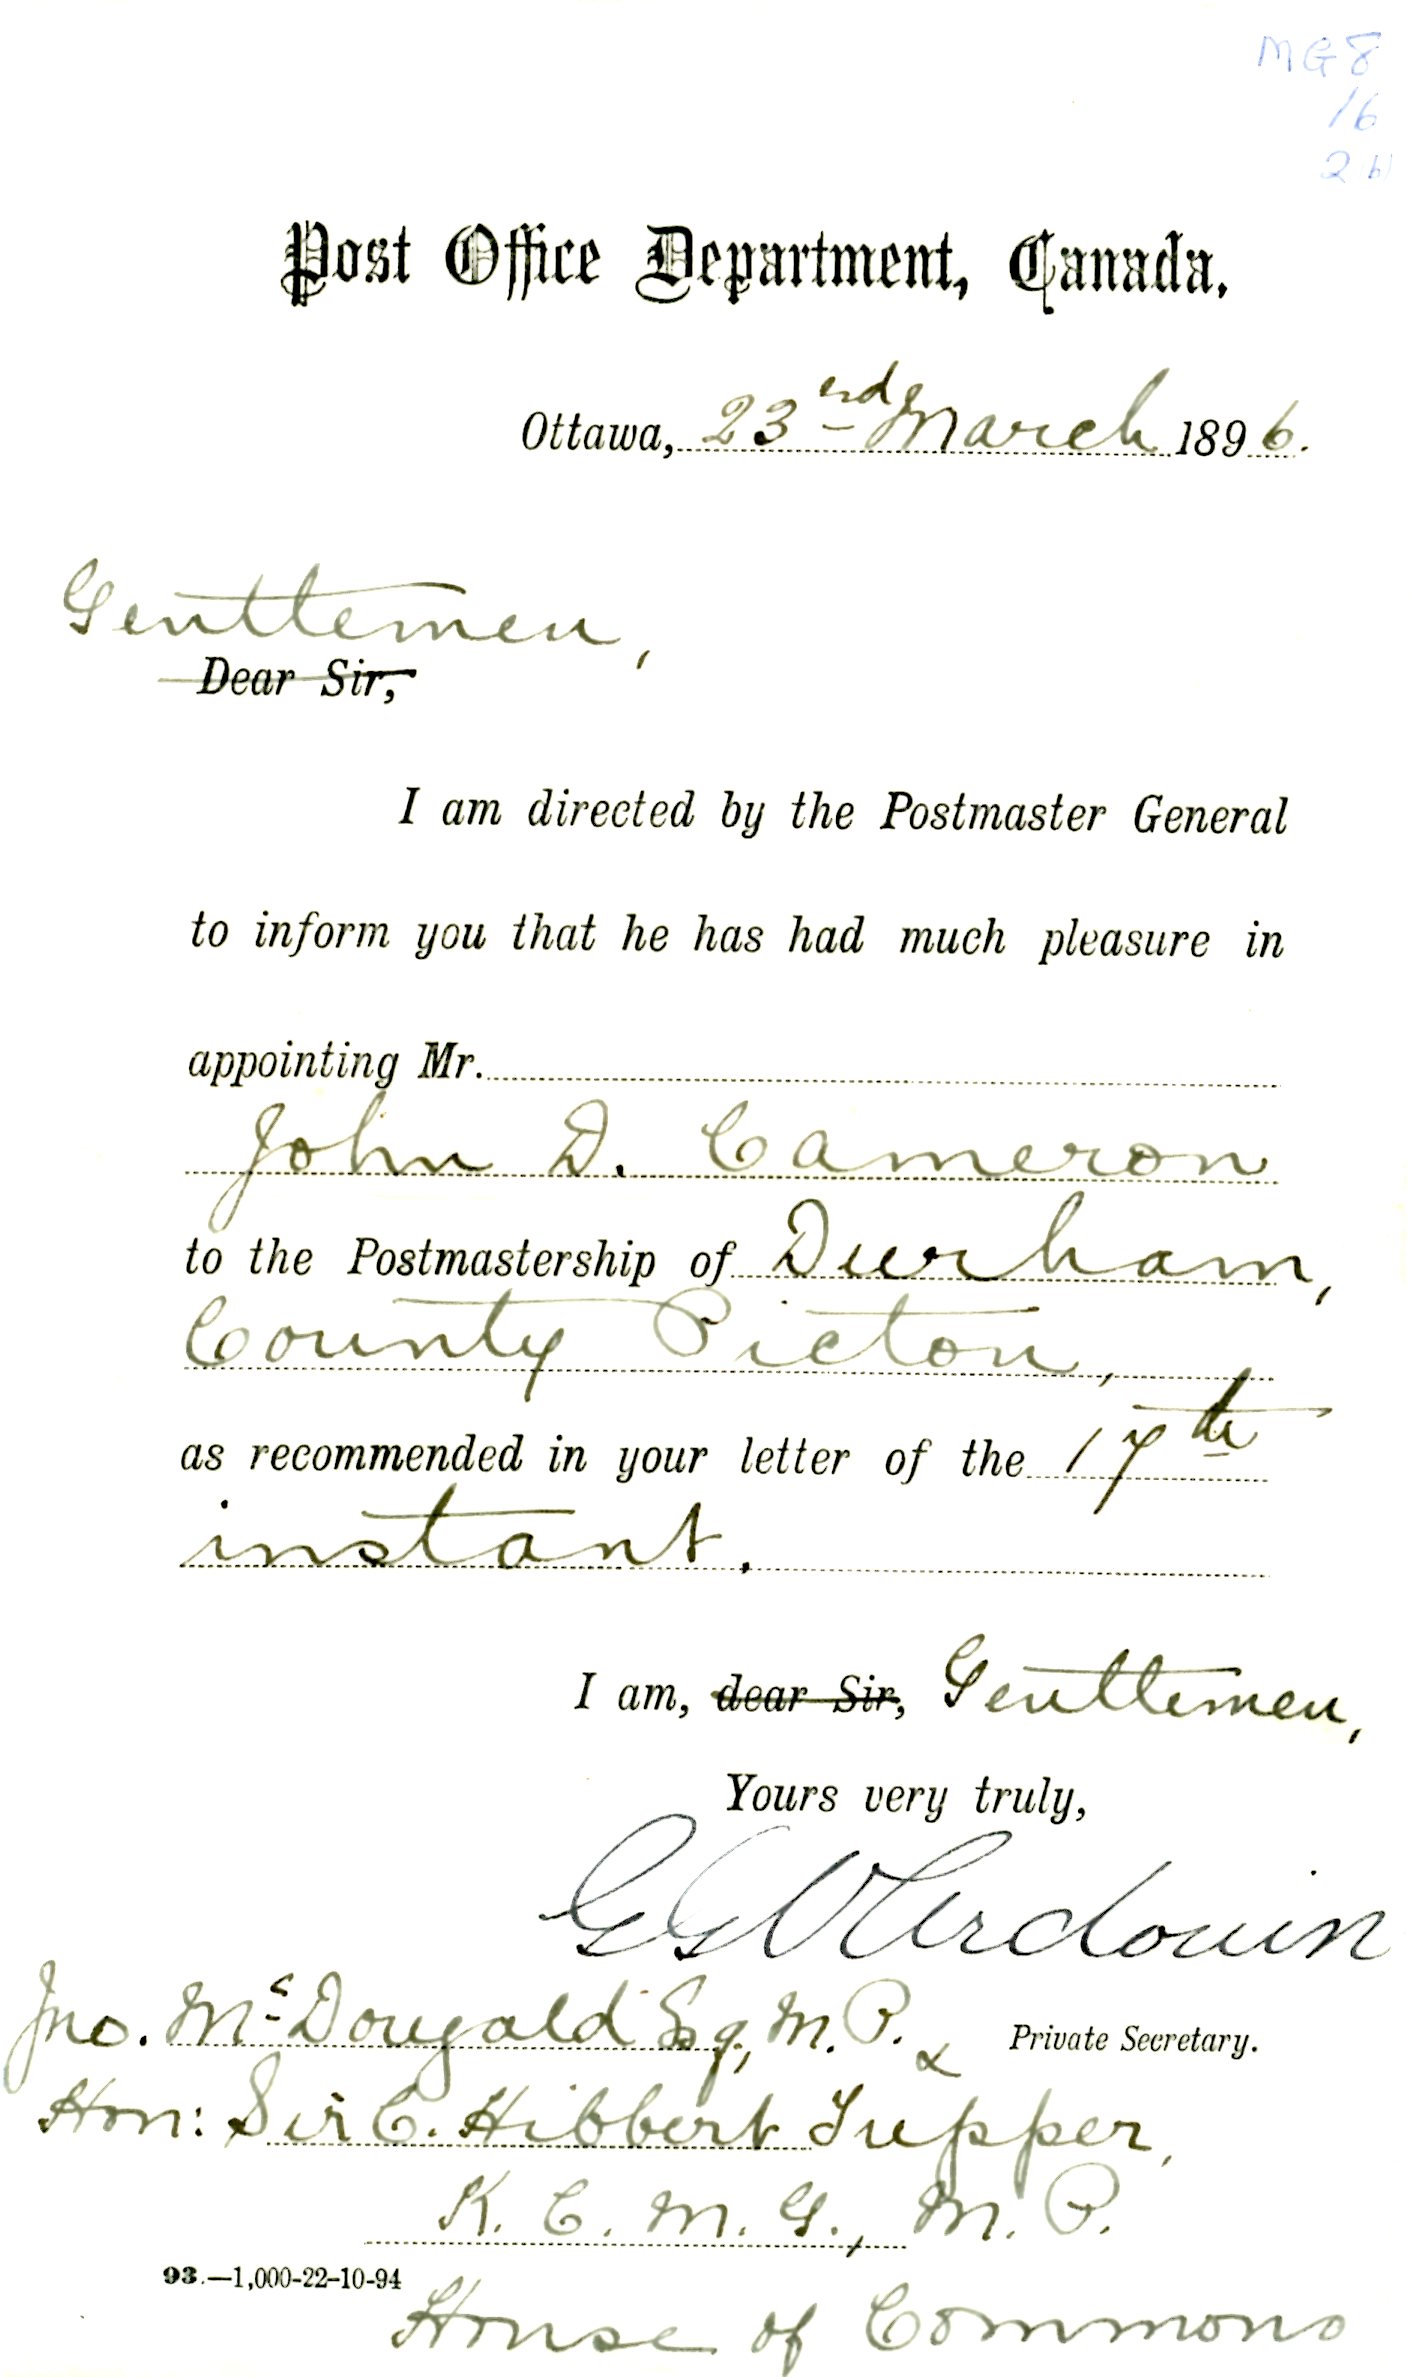 MG 8
16
2 b)
Post Office Department, Canada.
Ottawa, 23rd March 1896.
Gentlemen,
Dear Sir,
I am directed by the Postmaster General
to inform you that he has had much pleasure in
appointing Mr.
John D. Cameron
to the Postmastership of Durham,
County Pictou,
as recommended in your letter of the 17th
instant.
I am, dear Sir, Gentlemen,
Yours very truly,
Jno. McDougald Esq., M.P. &
Private Secretary.
Hon: Sir C. Hibbert Tupper,
K. C. M. G., M. P.
93.—1,000-22-10-94
House of Commons